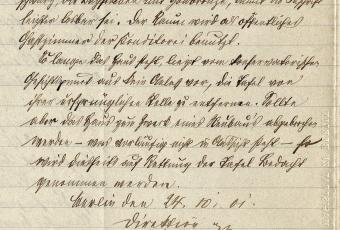 lesbar sei. Der Raum wird als öffentliches
Gastzimmer der Konditorei benutzt.
So lange das Haus steht, liegt vom konservatorischen
Gesichtspunkt aus kein Anlaß vor, die Tafel von
ihrer ursprünglichen Stelle zu entfernen. Sollte
aber das Haus zum Zweck eines Neubaus abgebrochen
werden – was vorläufig nicht in Aussicht steht – so
wird diesseits auf Rettung der Tafel Bedacht
genommen werden.
Berlin den 24. 10. 01.
Direktion